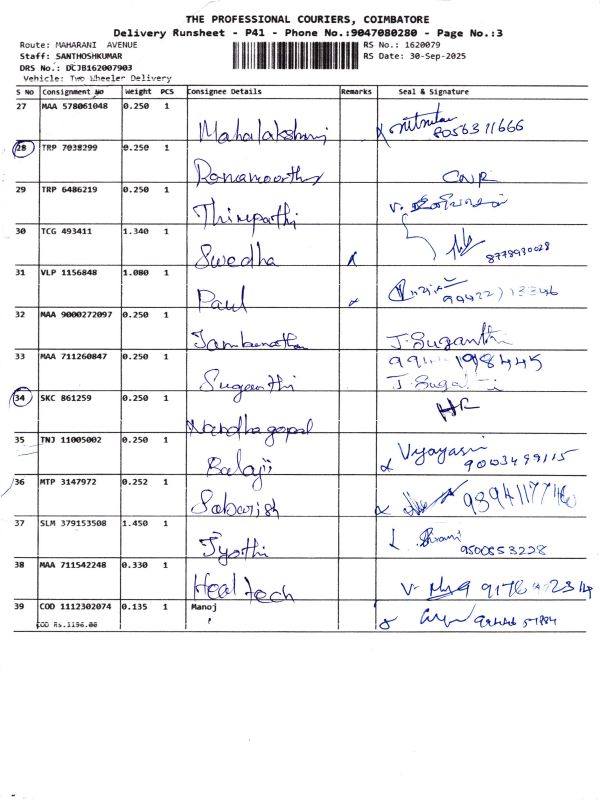 THE PROFESSIONAL COURIERS, COIMBATORE
Delivery Runsheet - P41 - Phone No.:9047080280 - Page No.:3
Route: MAHARANI AVENUE
RS No.: 1620079
Staff: SANTHOSHKUMAR
RS Date: 30-Sep-2025
DRS No.: DCJB162007903
Vehicle: Two Wheeler Delivery
S No Consignment No Weight PCS Consignee Details Remarks Seal & Signature
27 MAA 578061048 0.250 1
Mahalakshmi 8056311666
28 TRP 7038299 0.250 1
Ramamoorthy CNR
29 TRP 6486219 0.250 1
Thirupathi V.
30 TCG 493411 1.340 1
Swedha 8778930028
31 VLP 1156848 1.080 1
Paul
32 MAA 9000272097 0.250 1
Jambunathan J. Suganthi
33 MAA 711260847 0.250 1
Suganthi
34 SKC 861259 0.250 1
Nandhagopal
35 TNJ 11005002 0.250 1
Balaji Vijayasri 9003499115
36 MTP 3147972 0.252 1
Sabarish
37 SLM 379153508 1.450 1
Jyothi 9500853228
38 MAA 711542248 0.330 1
Heal tech
39 COD 1112302074 0.135 1 Manoj
COD Rs.1196.00